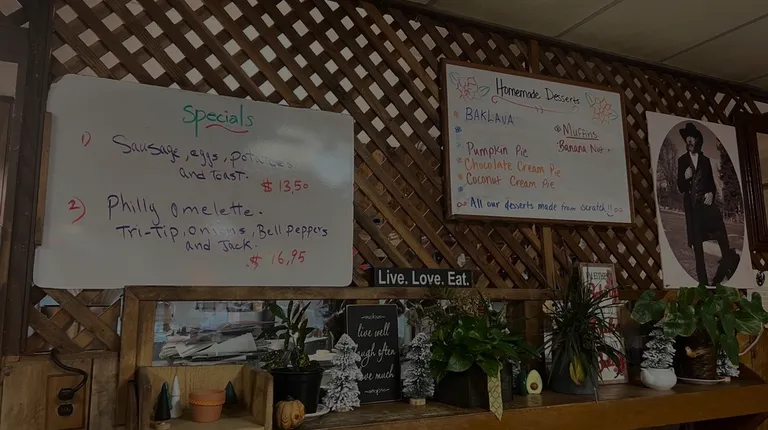 Specials
1) Sausage, eggs, potatoes
and Toast.
$ 13,50
2) Philly Omelette.
Tri-Tip, onions, Bell Peppers
and Jack.
$ 16,95
Homemade Desserts
BAKLAVA
Muffins
Banana Nut
Pumpkin Pie
Chocolate Cream Pie
Coconut Cream Pie
All our desserts made from scratch!!
Live. Love. Eat.
live well
laugh often
love much